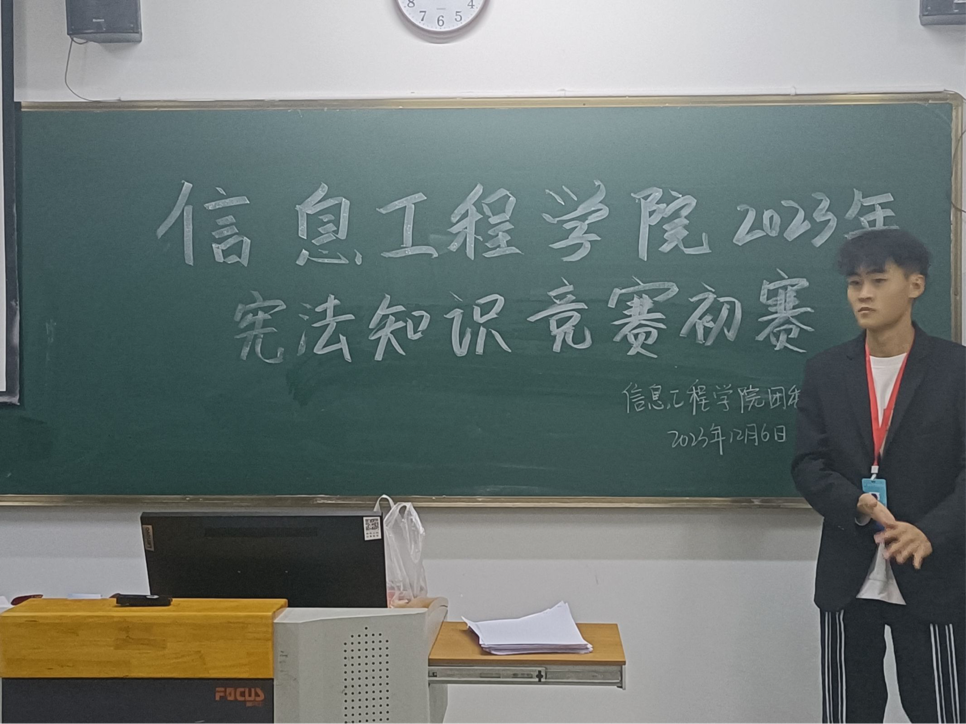 8 7 6 5 4
信息工程学院2023年
宪法知识竞赛初赛
信息工程学院团
2023年12月6日
FOCUS